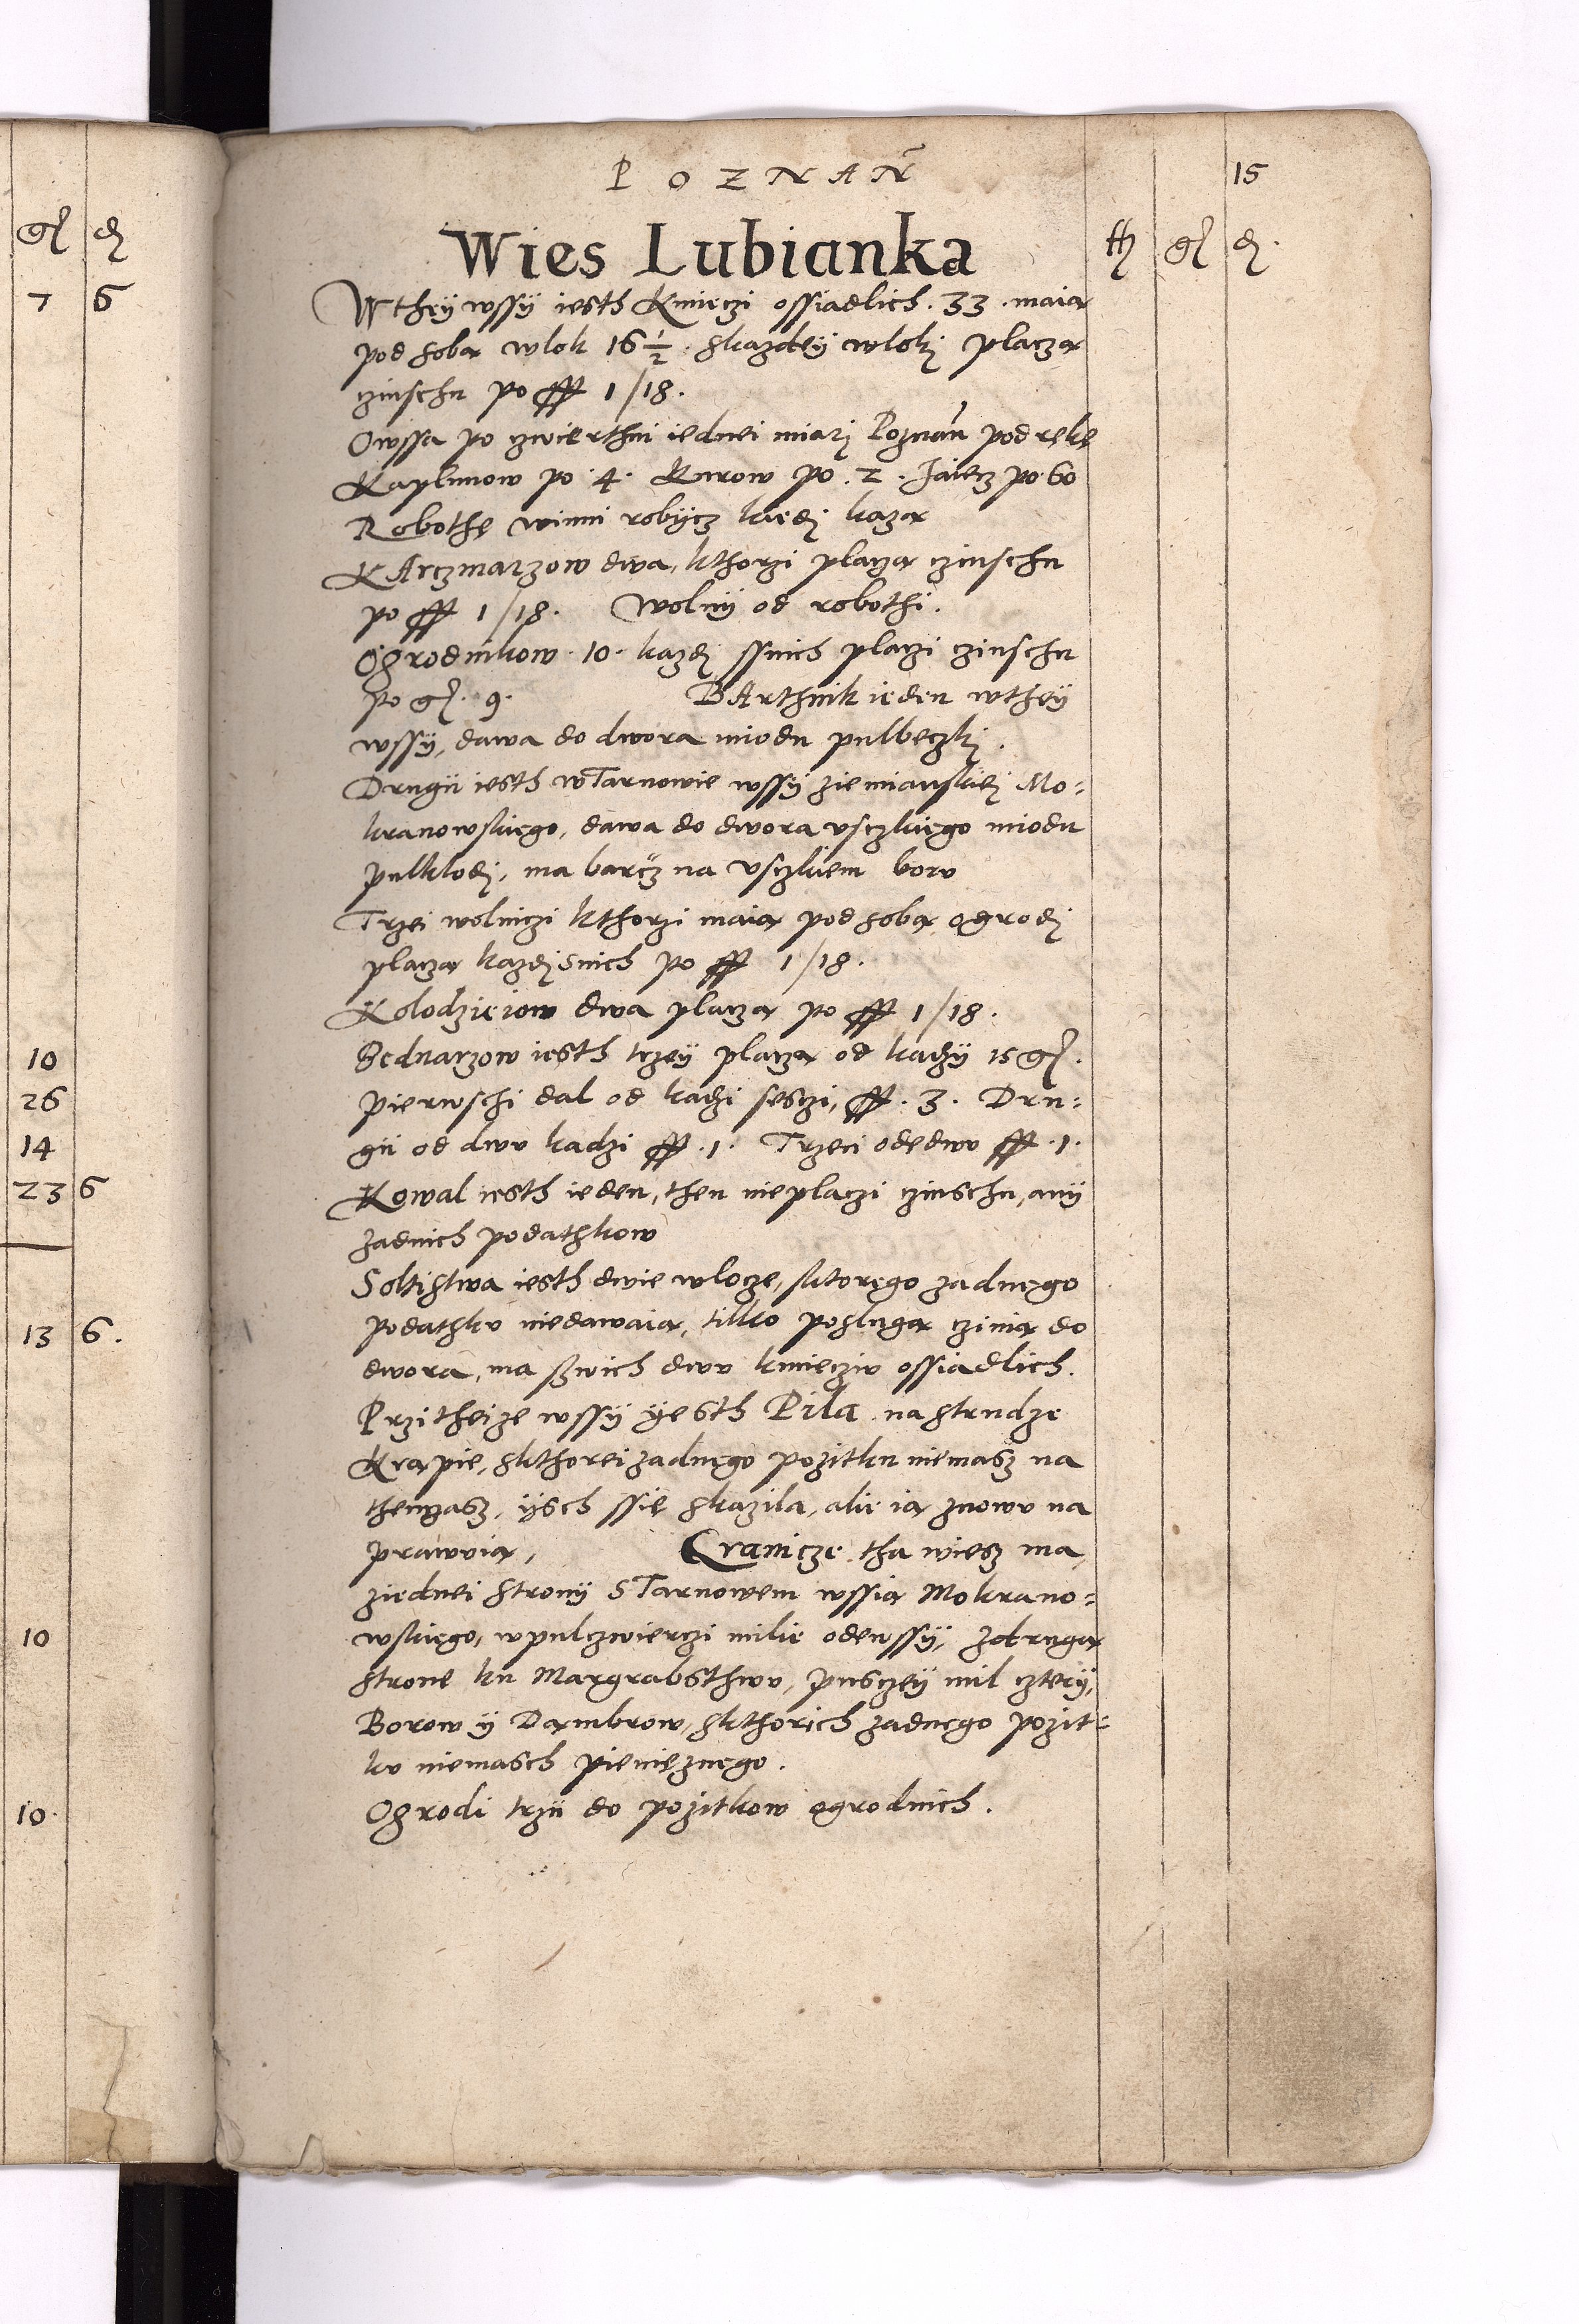 gſ ꝺ
7 6
10
26
14
23 6
13 6.
10
10.
POZNAN̄
15
Wies Lubianka
ff gſ ꝺ.
W theÿ wssÿ iesth Kmieczi ossiadlich . 33 . maią
pod sobą wlok 16 1/2 . skazdeÿ wlokj placzą
czinschu po ff 1/18.
Owssa po czwierthni iednei miarj Poznan̄ pod rękę
Kaplunow po . 4 . Kurow po . 2 . Jaiecz po 60
Robothę winni robÿcz kiedj kazą
KArczmarzow dwa, kthorzi placzą czinschu
po ff 1/18. Wolnÿ od robothi.
Ogrodnikow . 10 . kazdj ssnich placzi czinschu
po gſ. 9. BArthnik ieden wtheÿ
wssÿ, dawa do dwora miodu pulbeczkj.
Drugii iesth w Tarnowie wssÿ ziemianskiej Mo=
kranowskiego, dawa do dwora vsczkiego miodu
pulklodj, ma barcz na vsczkiem boru
Trzei wolniczi kthorzi maią pod sobą ogrodj
placzą kazdj snich po ff 1/18.
Kolodzieiow dwa placzą po ff 1/18.
Bednarzow iesth trzeÿ placzą od kadzÿ 15 gſ.
pierwschi dal od kadzi sesczi, ff . 3 . Dru=
gii od dwu kadzi ff . 1 . Trzeci odedwu ff . 1 .
Kowal iesth ieden, then nieplaczi czinschu, anÿ
zadnich podathkow
Soltistwa iesth dwie wlocze, sktorego zadnego
podathku niedawaią, tilko poslugą czinią do
dwora, ma sswich dwu kmieciw ossiadlich.
Przi theize wssÿ ÿesth Pila na strudze
Krąpie, skthorei zadnego pozitku niemasz na
thenczasz, ÿsch ssię skazila, alie ią znowu na
prawuią, Granicze tha wiesz ma
ziednei stronÿ s Tarnowem wssią Mokrano=
wskiego, wpulczwierczi milie odewssÿ, zdrugą
stronę ku Margrabsthwu, pusczeÿ mil czterÿ,
Borow ÿ Dąmbrow, skthorich zadnego pozit=
ku niemasch pieniężnego.
Ogrodi trzii do pozitkow ogrodnich.